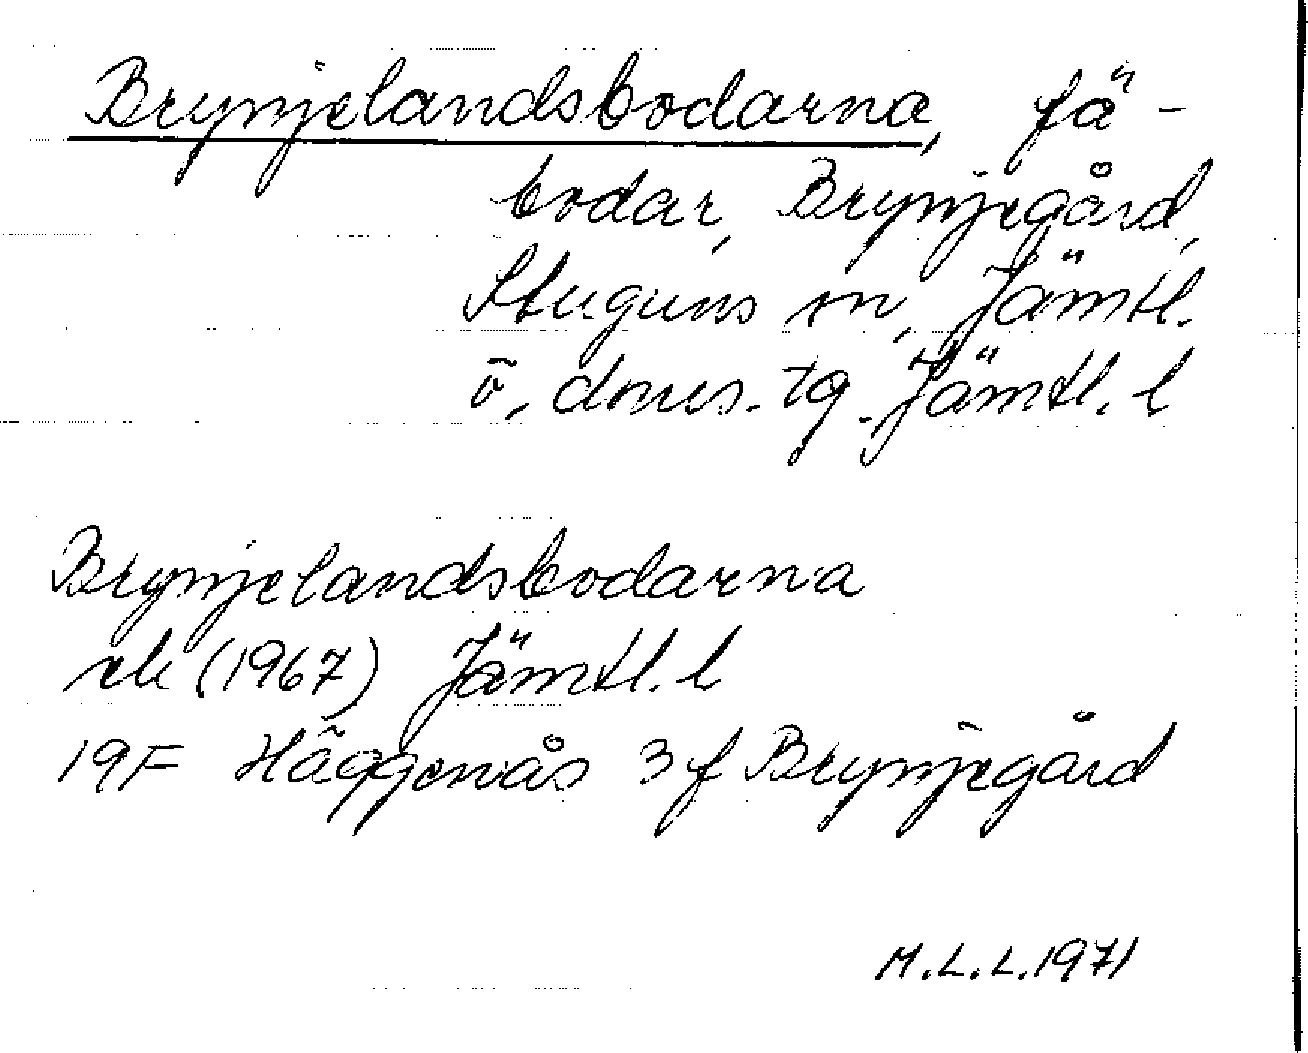 Brynjelandsbodarna, fä-
bodar, Brynjegård,
Stuguns sn, Jämtl.
ö. doms. tg. Jämtl. l
Brynjelandsbodarna
rak (1967) Jämtl. l
19F Häggenås 3f Brynjegård
M.L.L. 1971